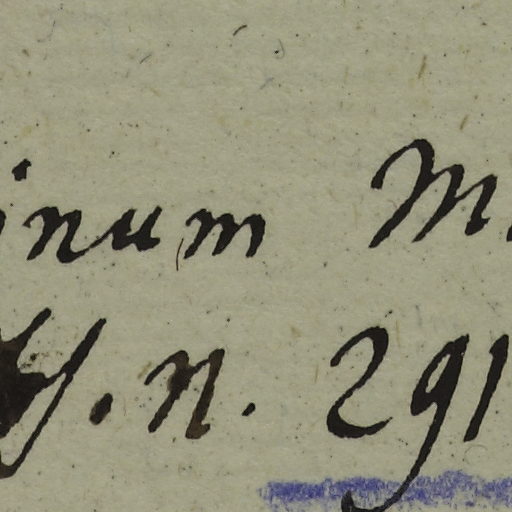 inum M.
y. n. 291